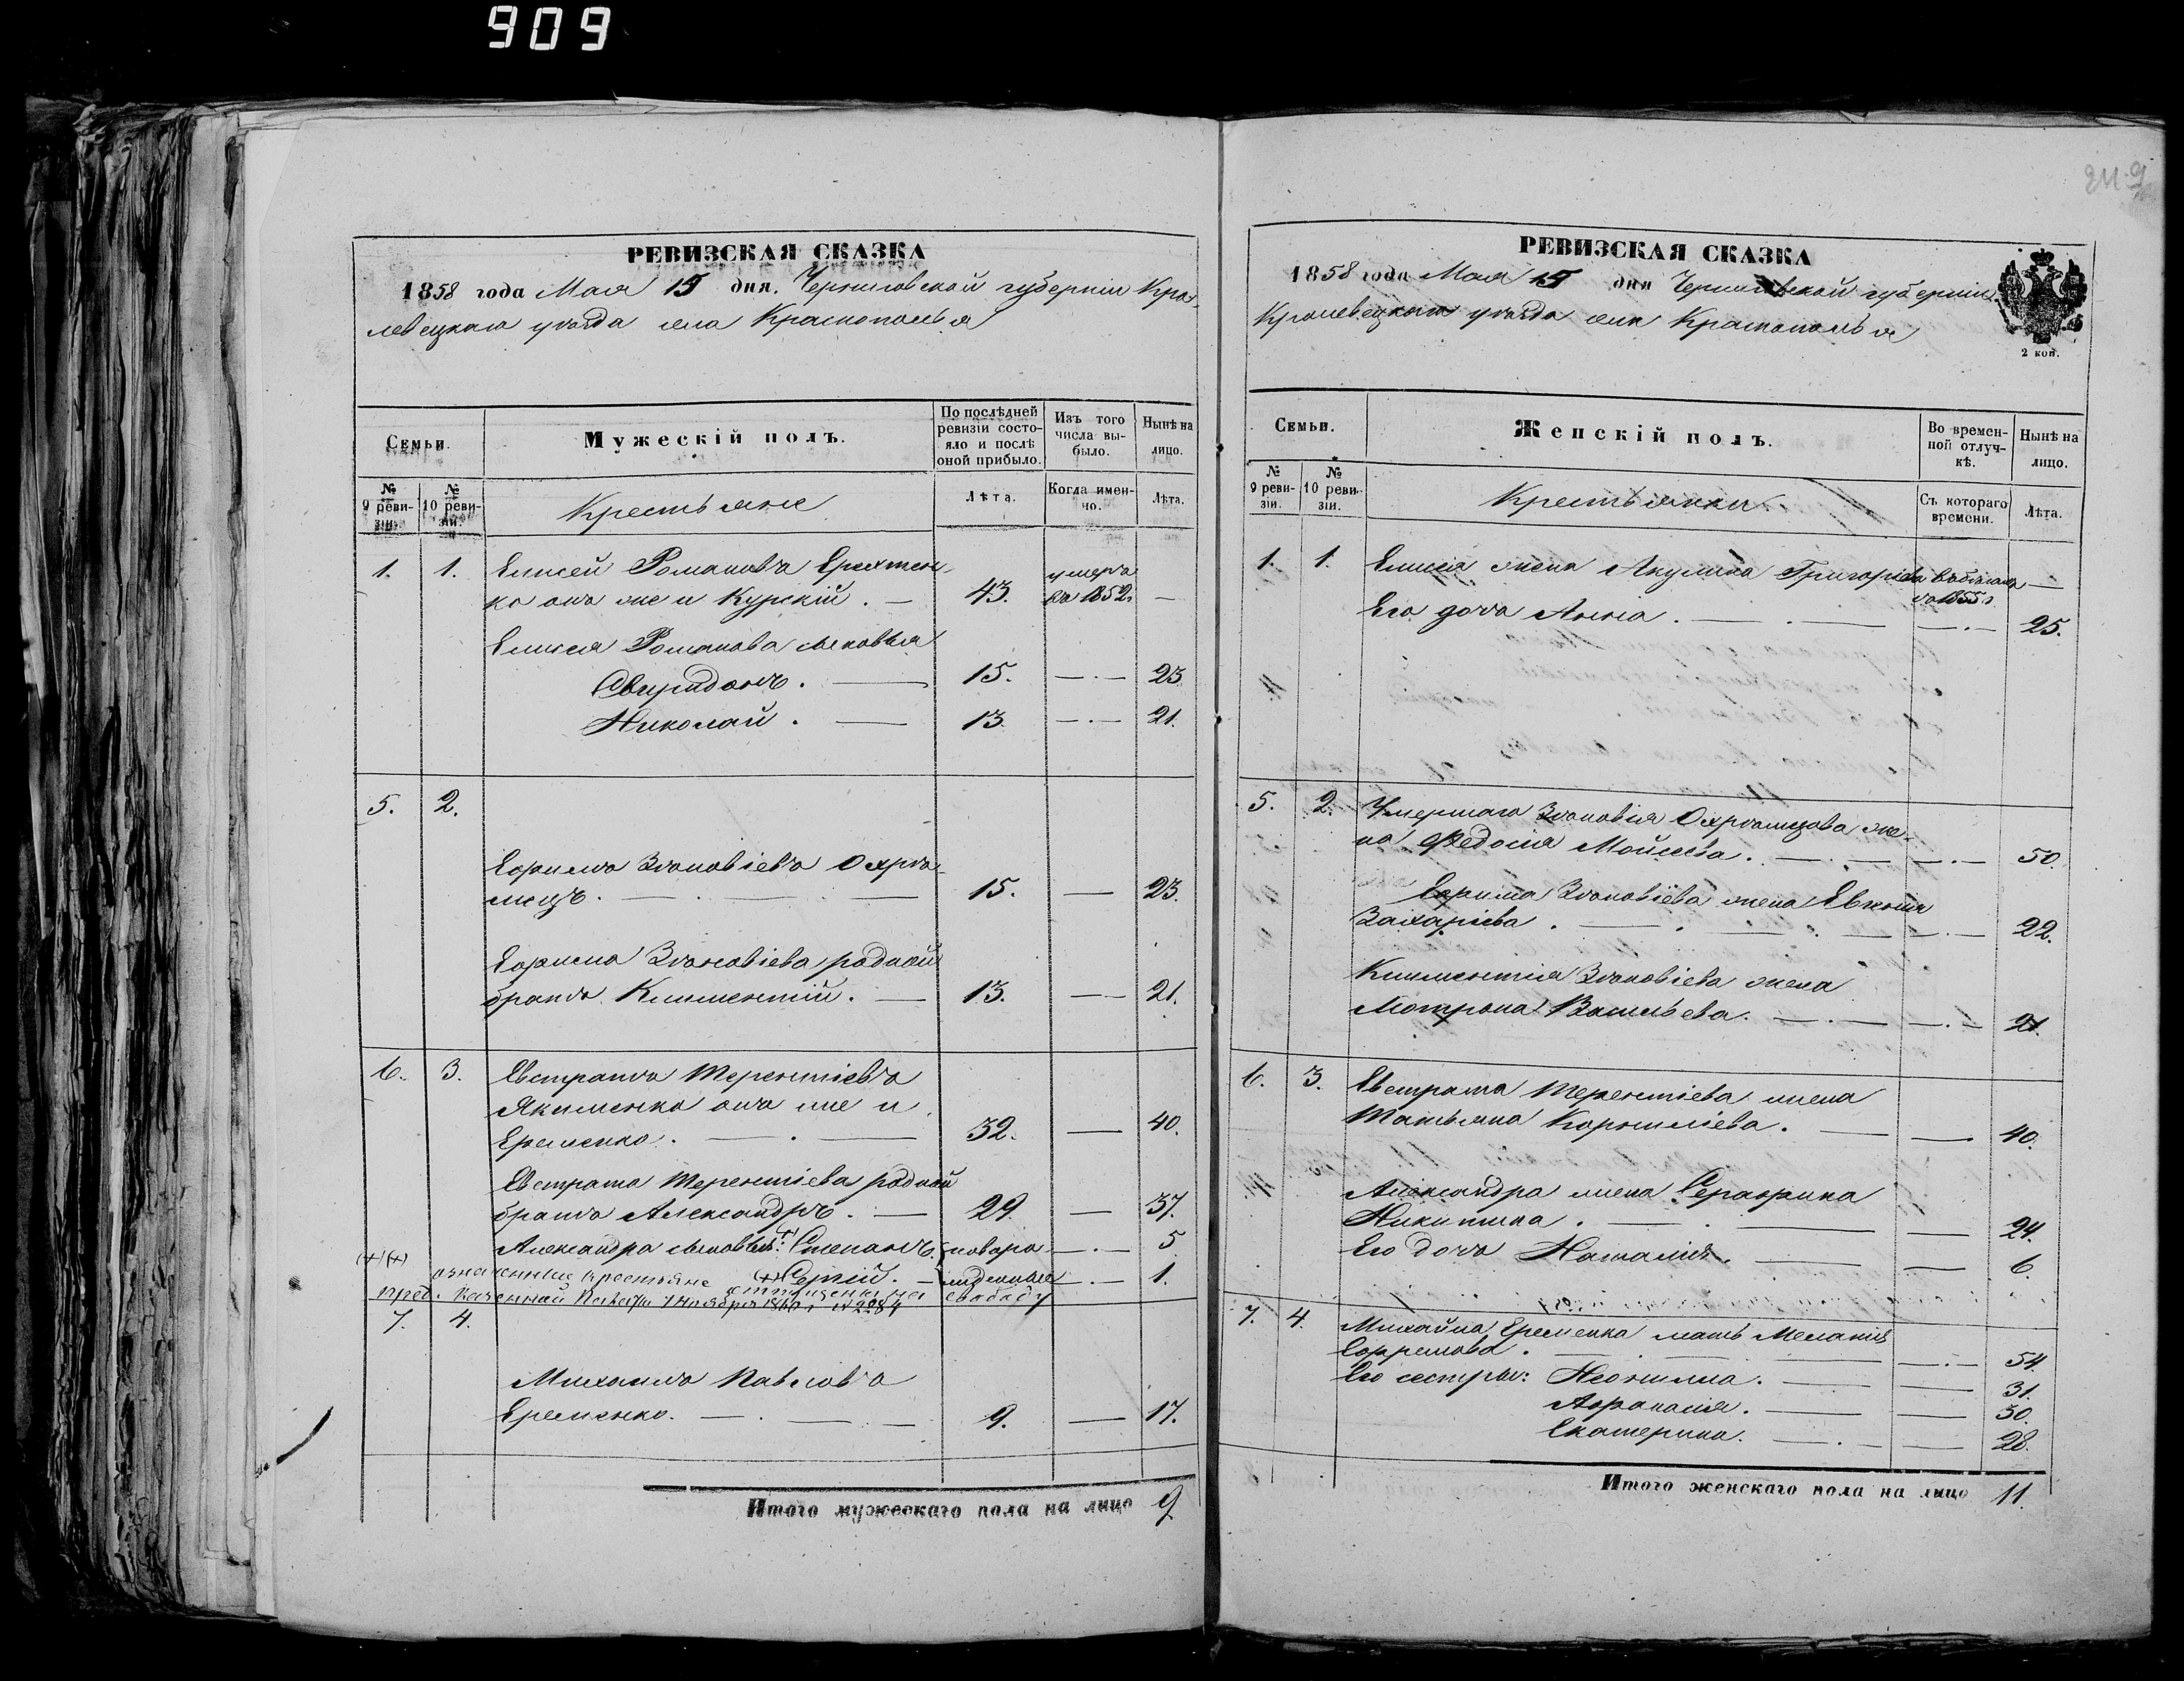 909
249
РЕВИЗСКАЯ СКАЗКА
1858 года Мая 15 дня. Черниговской губерніи Кро-
левецкаго уѣзда села Краснополья
Семьи.
Мужескій полъ.
По послѣдней ревизіи состо-яло и послѣ оной прибыло.
Изъ того числа вы-было.
Нынѣ на лицо.
№ 9 реви-зіи.
№ 10 реви-зіи.
Крестьяне
Лѣта.
Когда имен-но.
Лѣта.
1. 1. Елисей Романовъ
ко онъ же и Курскій. — 43. умеръ въ 1852 г —
Елисея Романова сыновья
Свиридонъ. — 15. —.— 23
Николай. — 13. —.— 21.
5. 2.
Ефимъ Зѣновіевъ Охрѣ-
мецъ. — 15. — 23.
Ефима Зѣновіева родной
братъ Климентій. — 13. — 21.
6. 3. Евстратъ Терентіевъ
Якименко онъ же и
Еременко. — 32. — 40.
Евстрата Терентіева родной
братъ Александръ. — 29. — 37.
Александра сыновья: (+) Степанъ. новоро- —.— 5
(+)(+) означенные крестьяне (+) Сергій. — —.— 1.
пред. Казенной Палаты 7 Ноября свободу
7. 4.
Михаилъ Павловъ
Еременко. — 9. — 17.
Итого мужескаго пола на лицо 9
РЕВИЗСКАЯ СКАЗКА
1858 года Мая 15 дня Черниговской губерніи
Кролевецкаго уѣзда села Краснополья
2 коп.
Семьи.
Женскій полъ.
Во времен-ной отлуч-кѣ.
Нынѣ на лицо.
№ 9 реви-зіи.
№ 10 реви-зіи.
Крестьянки
Съ котораго времени.
Лѣта.
1. 1. Елисія жена Акулина Григоріева въ бѣгахъ съ 1855 г —
Его дочь Анна. — —.— 25.
5. 2. Умершаго Зѣновія Охрѣмцова же-
на Федосія Мойсеева. — —.— 50.
Ефима Зѣновіева жена Евгенія
Захаріева. — —.— 22.
Климентія Зѣновіева жена
Мотрона Васильева. — —.— 21.
6. 3. Евстрата Терентіева жена
Татьяна Корниліева. — — 40.
Александра жена Серафима
Никитина. — — 24.
Его дочь Наталія. — — 6.
7. 4. Михайла Еременка мать Меланія
Ефремова. — —.— 54.
Его сестры: Неонилла. — — 31.
Афанасія. — — 30.
Екатерина. — — 28.
Итого женскаго пола на лицо 11.